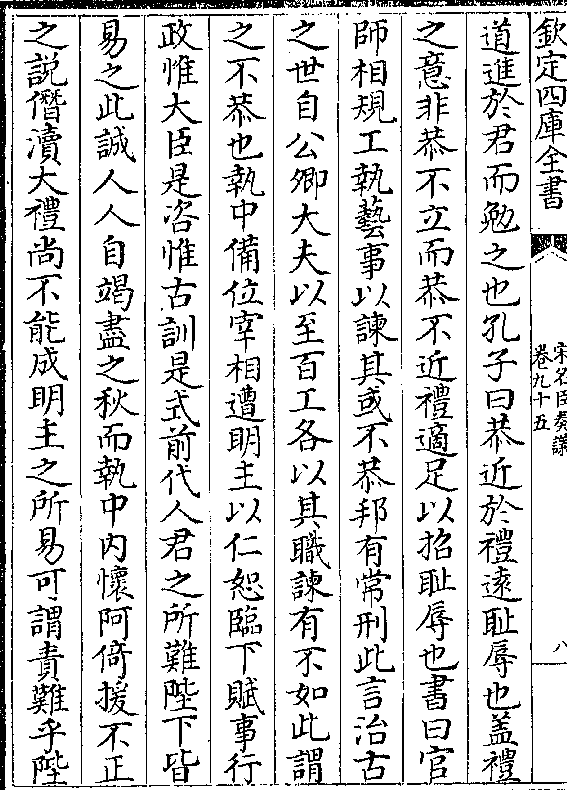 欽定四庫全書
宋名臣奏議
卷九十五
八
道進於君而勉之也孔子曰恭近於禮遠恥辱也蓋禮
之意非恭不立而恭不近禮適足以招恥辱也書曰官
師相規工執藝事以諫其或不恭邦有常刑此言治古
之世自公卿大夫以至百工各以其職諫有不如此謂
之不恭也執中備位宰相遭明主以仁恕臨下賦事行
政惟大臣是咨惟古訓是式前代人君之所難陛下皆
易之此誠人人自竭盡之秋而執中內懷阿倚援不正
之說僭瀆大禮尚不能成明主之所易可謂責難乎陛